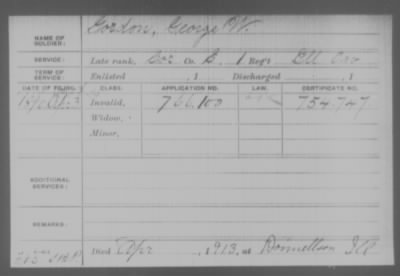 Gordon, George W.
NAME OF SOLDIER:
SERVICE: Late rank, Cor Co. B, 1 Reg't Ill Cav
TERM OF SERVICE: Enlisted , 1 Discharged , 1
DATE OF FILING. CLASS. APPLICATION NO. LAW. CERTIFICATE NO.
Invalid, 766.100 754.747
Widow,
Minor,
ADDITIONAL SERVICES:
REMARKS:
Died Apr , 1913, at Donnellson Ill